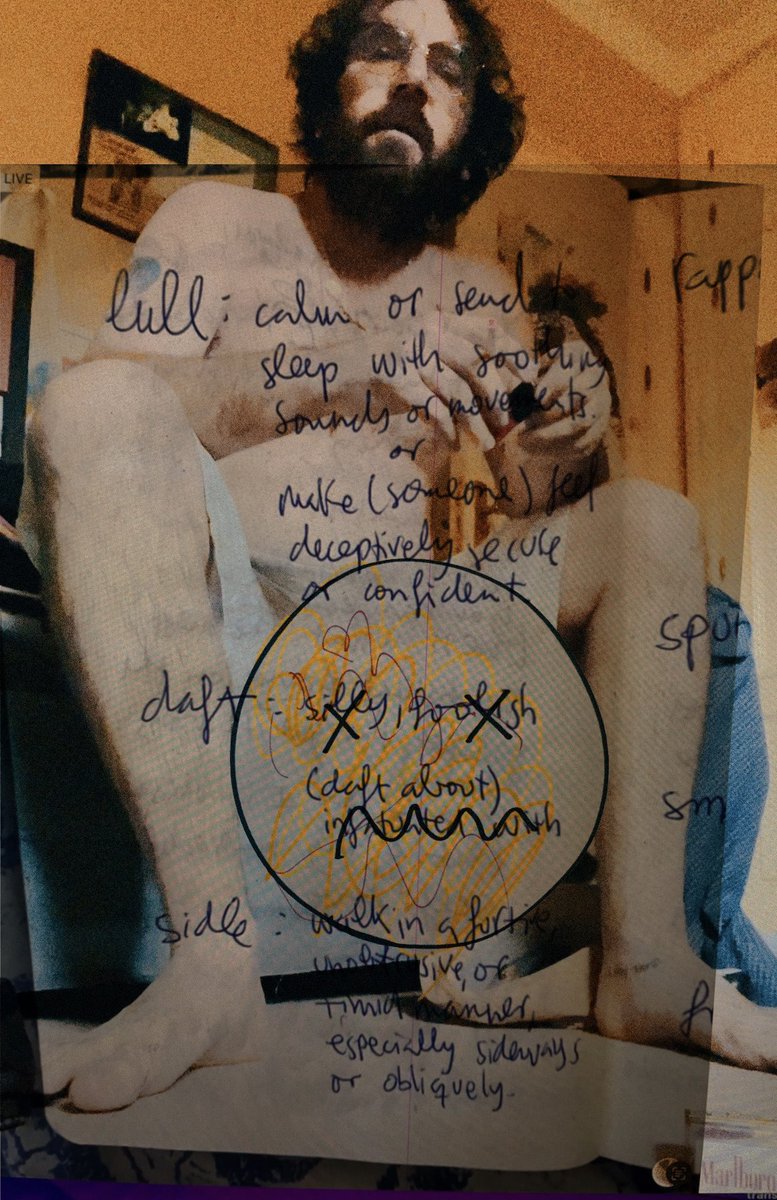 LIVE
lull : calm or send to
sleep with soothing
sounds or movements.
or
make (someone) feel
deceptively secure
or confident
daft : silly, foolish
(daft about)
infatuated with
sidle : walk in a furtive,
unobtrusive, or
timid manner,
especially sideways
or obliquely.
rapp
spu
sm
Marlboro